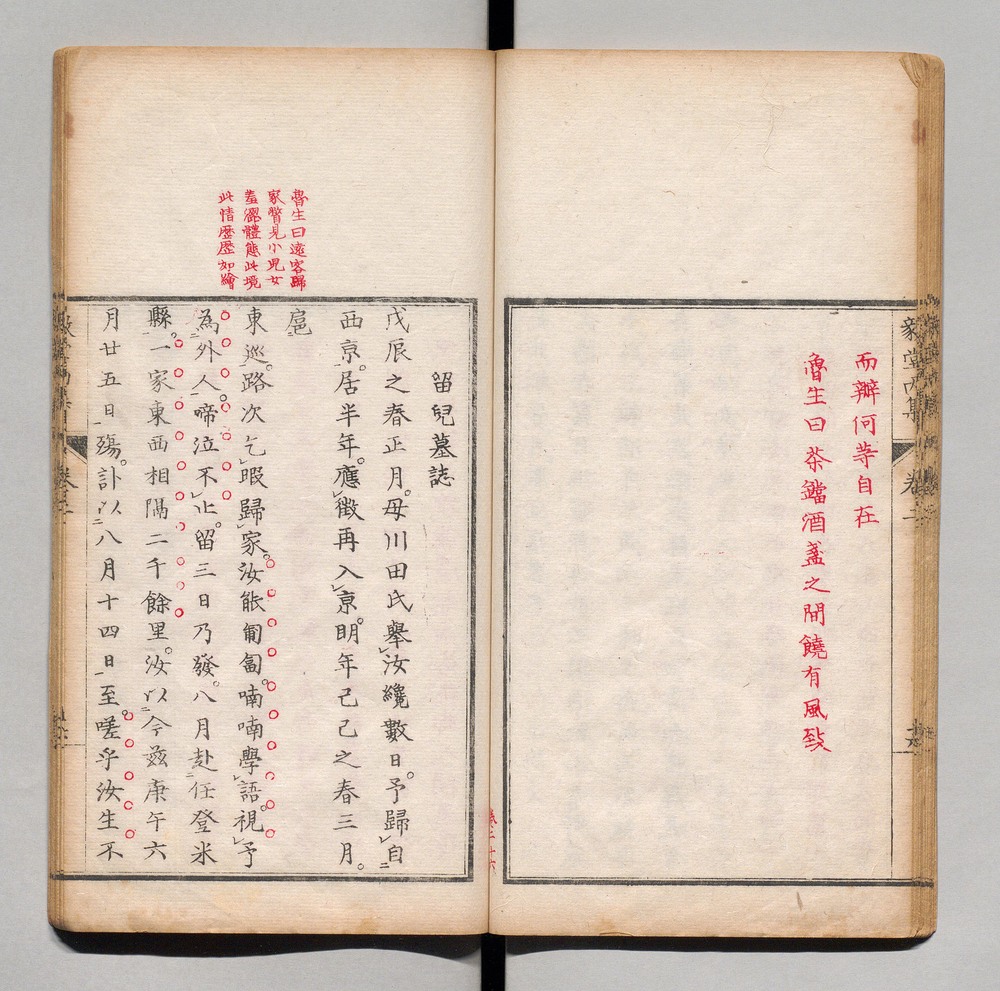 而辦何等自在
魯生曰茶鐺酒盞之間饒有風致
魯生曰遠客歸
家瞥見小兒女
羞澀體態此境
此情歷歷如繪
留兒墓誌
戊辰之春正月。母川田氏舉汝纔數日。予歸自
西京。居半年。應徵再入京。明年己巳之春三月。
扈
東巡。路次乞暇歸家。汝能匍匐。喃喃學語。視予
為外人。啼泣不止。留三日乃發。八月赴任登米
縣。一家東西相隔二千餘里。汝以今茲庚午六
月廿五日殤。訃以八月十四日至。嗟乎汝生不